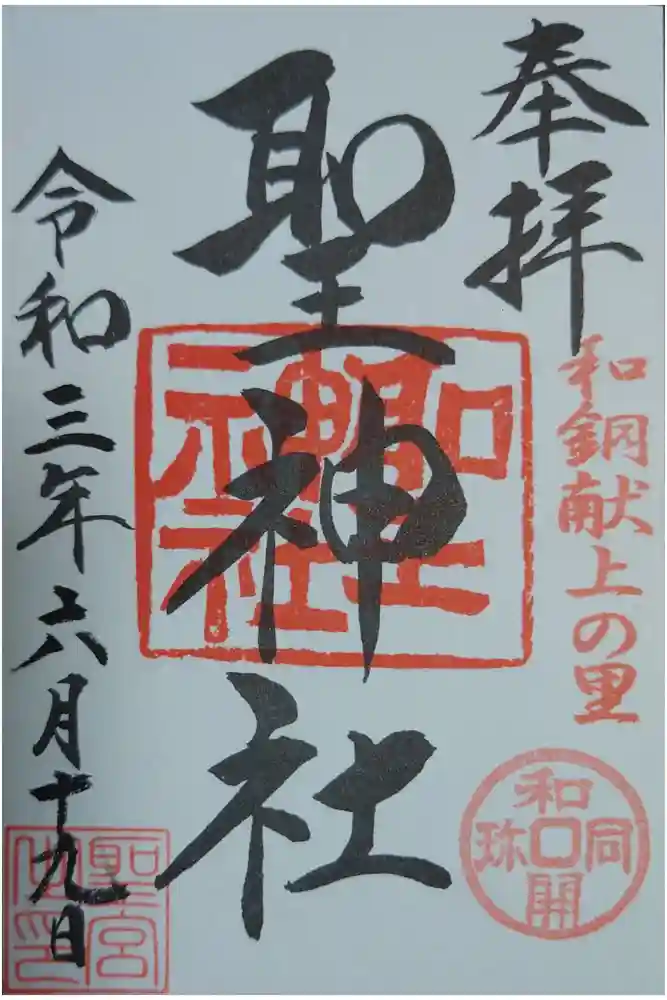 奉拝
和銅献上の里
和同開珎
聖神社
聖神社
令和三年六月十九日